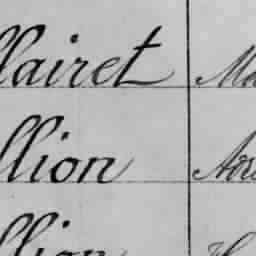 llairet Ma
llion Adri
llion